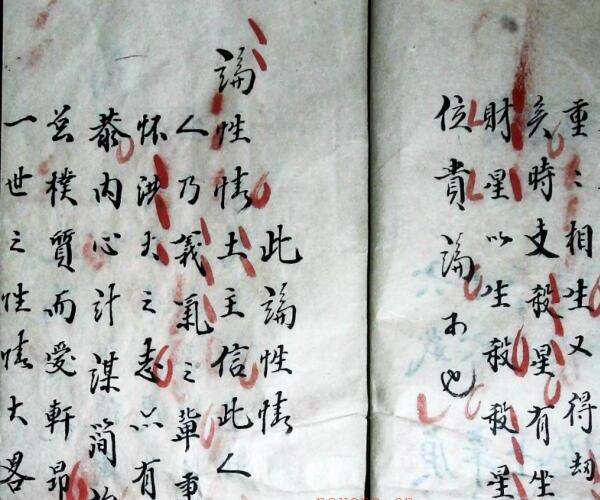 重〻相生又得劫
矣時支殺星有坐
財星以生殺殺星
位貴論不也
此論性情
論性情土主信此人
人乃義氣之輩重
怀洪大之志只有
藏内心計謀簡
足樸質而愛軒昂
一世之性情大畧